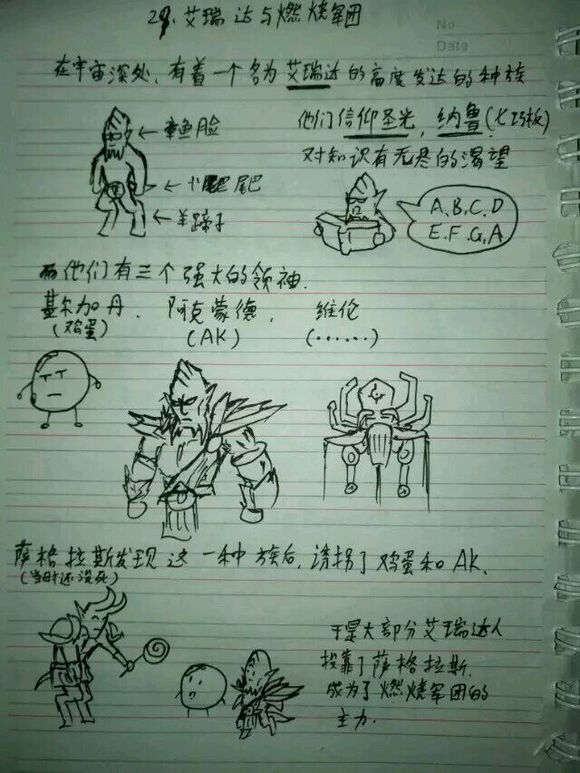 29. 艾瑞达与燃烧军团
No
Date
在宇宙深处, 有着一个名为艾瑞达的高度发达的种族
章鱼脸
小尾巴
羊蹄子
他们信仰圣光, 纳鲁(七巧板)
对知识有无尽的渴望
A.B.C.D
E.F.G.A
而他们有三个强大的领袖.
基尔加丹. 阿克蒙德, 维伦
(鸡蛋) (AK) (……)
萨格拉斯发现这一种族后, 诱拐了鸡蛋和AK.
(当时还没死)
于是大部分艾瑞达人
投靠了萨格拉斯.
成为了燃烧军团的
主力.